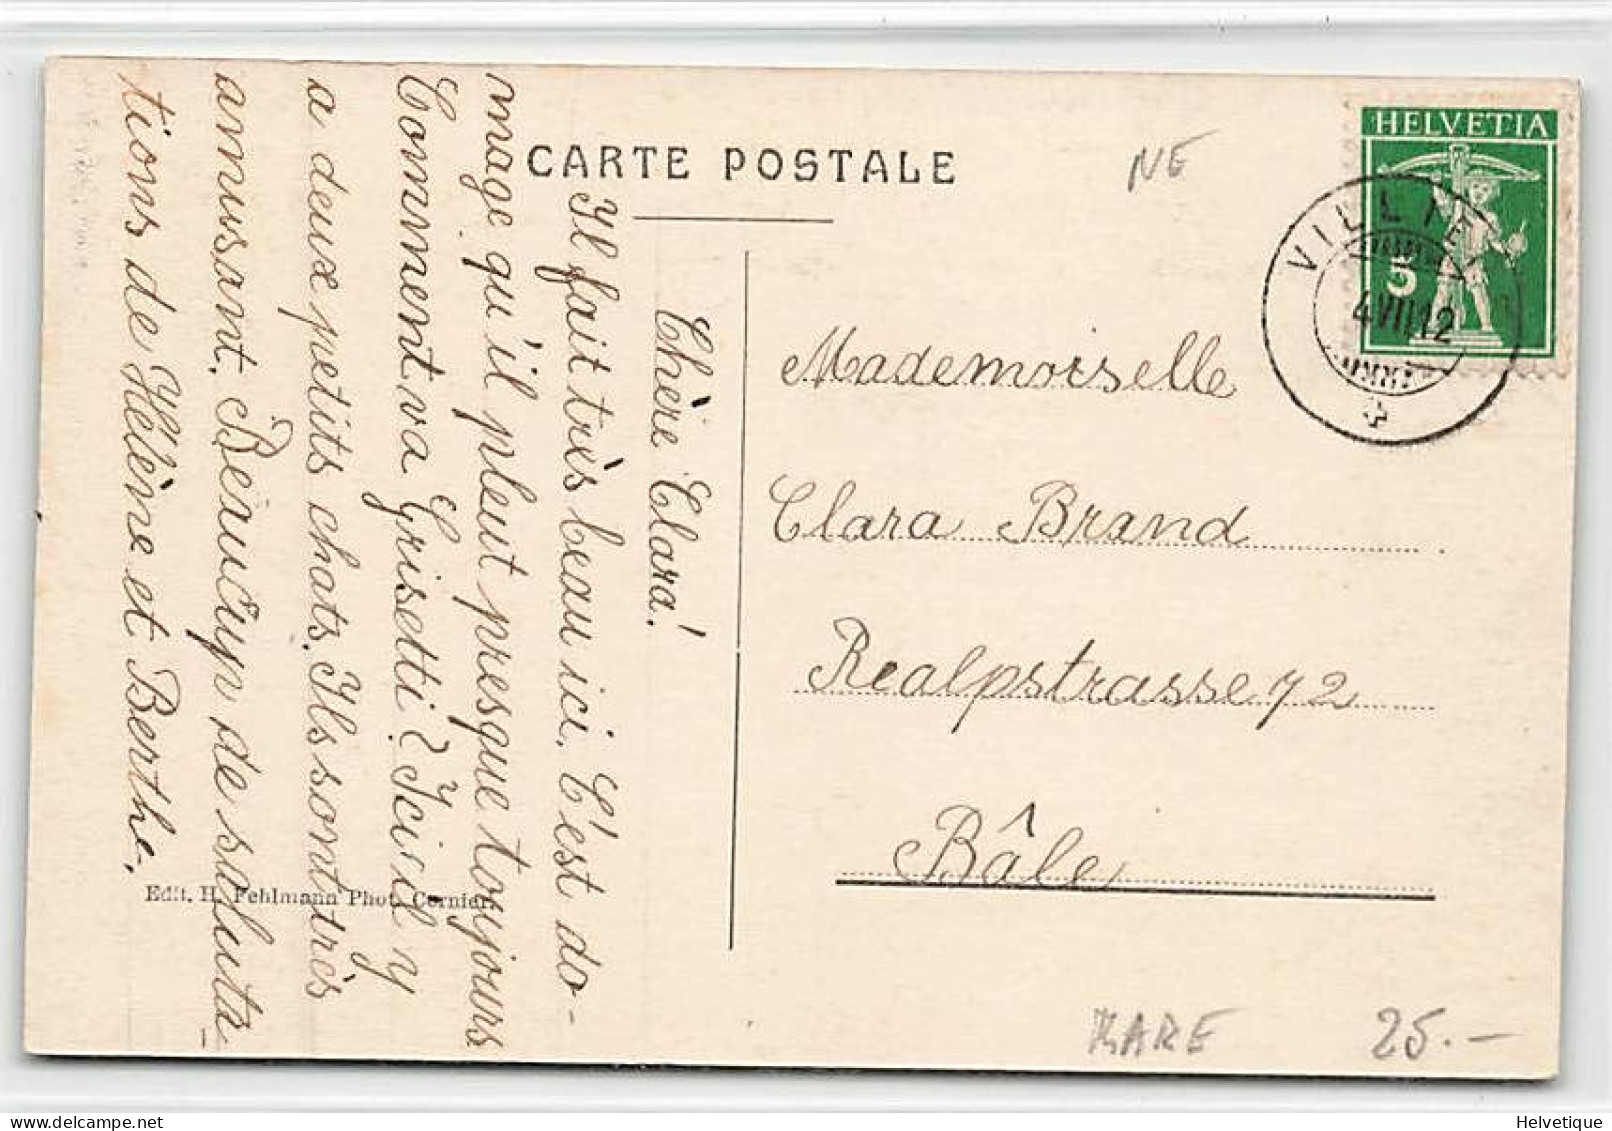 CARTE POSTALE
NE
HELVETIA
5
VILLIE
4 VII 12
Chère Clara!
Il fait très beau ici. C'est do-
mage qu'il pleut presque toujours
Comment va Grisetti? Ici il y
a deux petits chats. Ils sont très
amusant. Beaucup de saluta-
tions de Hélène et Berthe.
Mademoiselle
Clara Brand
Realpstrasse 72
Bâle
Edit. H. Fehlmann Phot. Cernier.
RARE
25.-
Helvetique